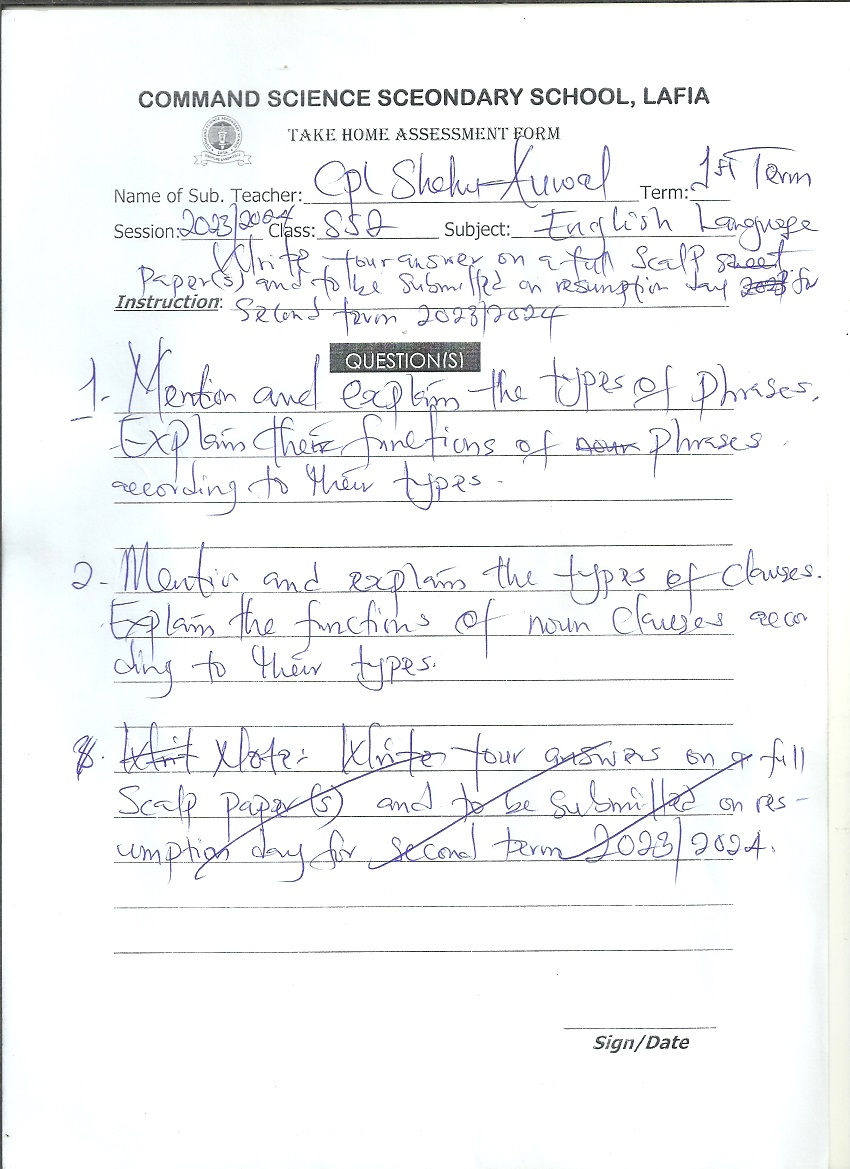 COMMAND SCIENCE SCEONDARY SCHOOL, LAFIA
TAKE HOME ASSESSMENT FORM
Name of Sub. Teacher: Cpl Shehu Auwal Term: 1st Term
Session: 2023/2024 Class: SS2 Subject: English Language
Write your answer on a full Scalp sheet
Paper(s) and to be Submitted on resumption day 2023 for
Instruction: Second term 2023/2024
QUESTION(S)
1. Mention and explain the types of phrases.
Explain their functions of noun phrases
according to their types.
2- Mention and explain the types of clauses.
Explain the functions of noun clauses accor
ding to their types.
Writ Note:- Write your answers on a full
Scalp paper(s) and to be submitted on res-
umption day for second term 2023/2024.
Sign/Date